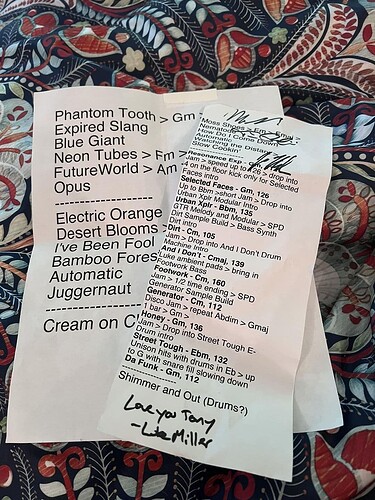 Phantom Tooth > Gm
Expired Slang
Blue Giant
Neon Tubes > Fm >
FutureWorld > Am
Opus
--------------------
Electric Orange
Desert Blooms >
I've Been Fool
Bamboo Fores
Automatic
Juggernaut
--------------------
Cream on C
Moss Shoes > Em > Cmaj >
Nematode
How Do I Come Down
Automatic
Watching the Distan
Slow Cookin'
--------------------
Resonance Exp - Gm,
Jam > speed up to 126 > drop into
4 on the floor kick only for Selected
Faces intro
Selected Faces - Gm, 126
Up to Bbm >short Jam > Drop into
Urban Xplr Modular Intro
Urban Xplr - Bbm, 135
GTR Melody and Modular > SPD
Dirt Sample Build > Bass Synth
Dirt Intro
Dirt - Cm, 105
Jam > Drop into And I Don't Drum
Machine Intro
And I Don't - Cmaj, 139
Luke ambient pads > bring in
Footwork Bass
Footwork - Cm, 160
Jam > 1/2 time ending > SPD
Generator Sample Build
Generator - Cm, 112
Disco Jam > repeat Abdim > Gmaj
1 bar > Gm >
Honey - Gm, 136
Jam > Drop into Street Tough E-
Drum intro
Street Tough - Ebm, 132
Unison hits with drums in Eb > up
to G with snare fill slowing down
Da Funk - Gm, 112
--------------------
Shimmer and Out (Drums?)
Love you Tony
-Luke Miller